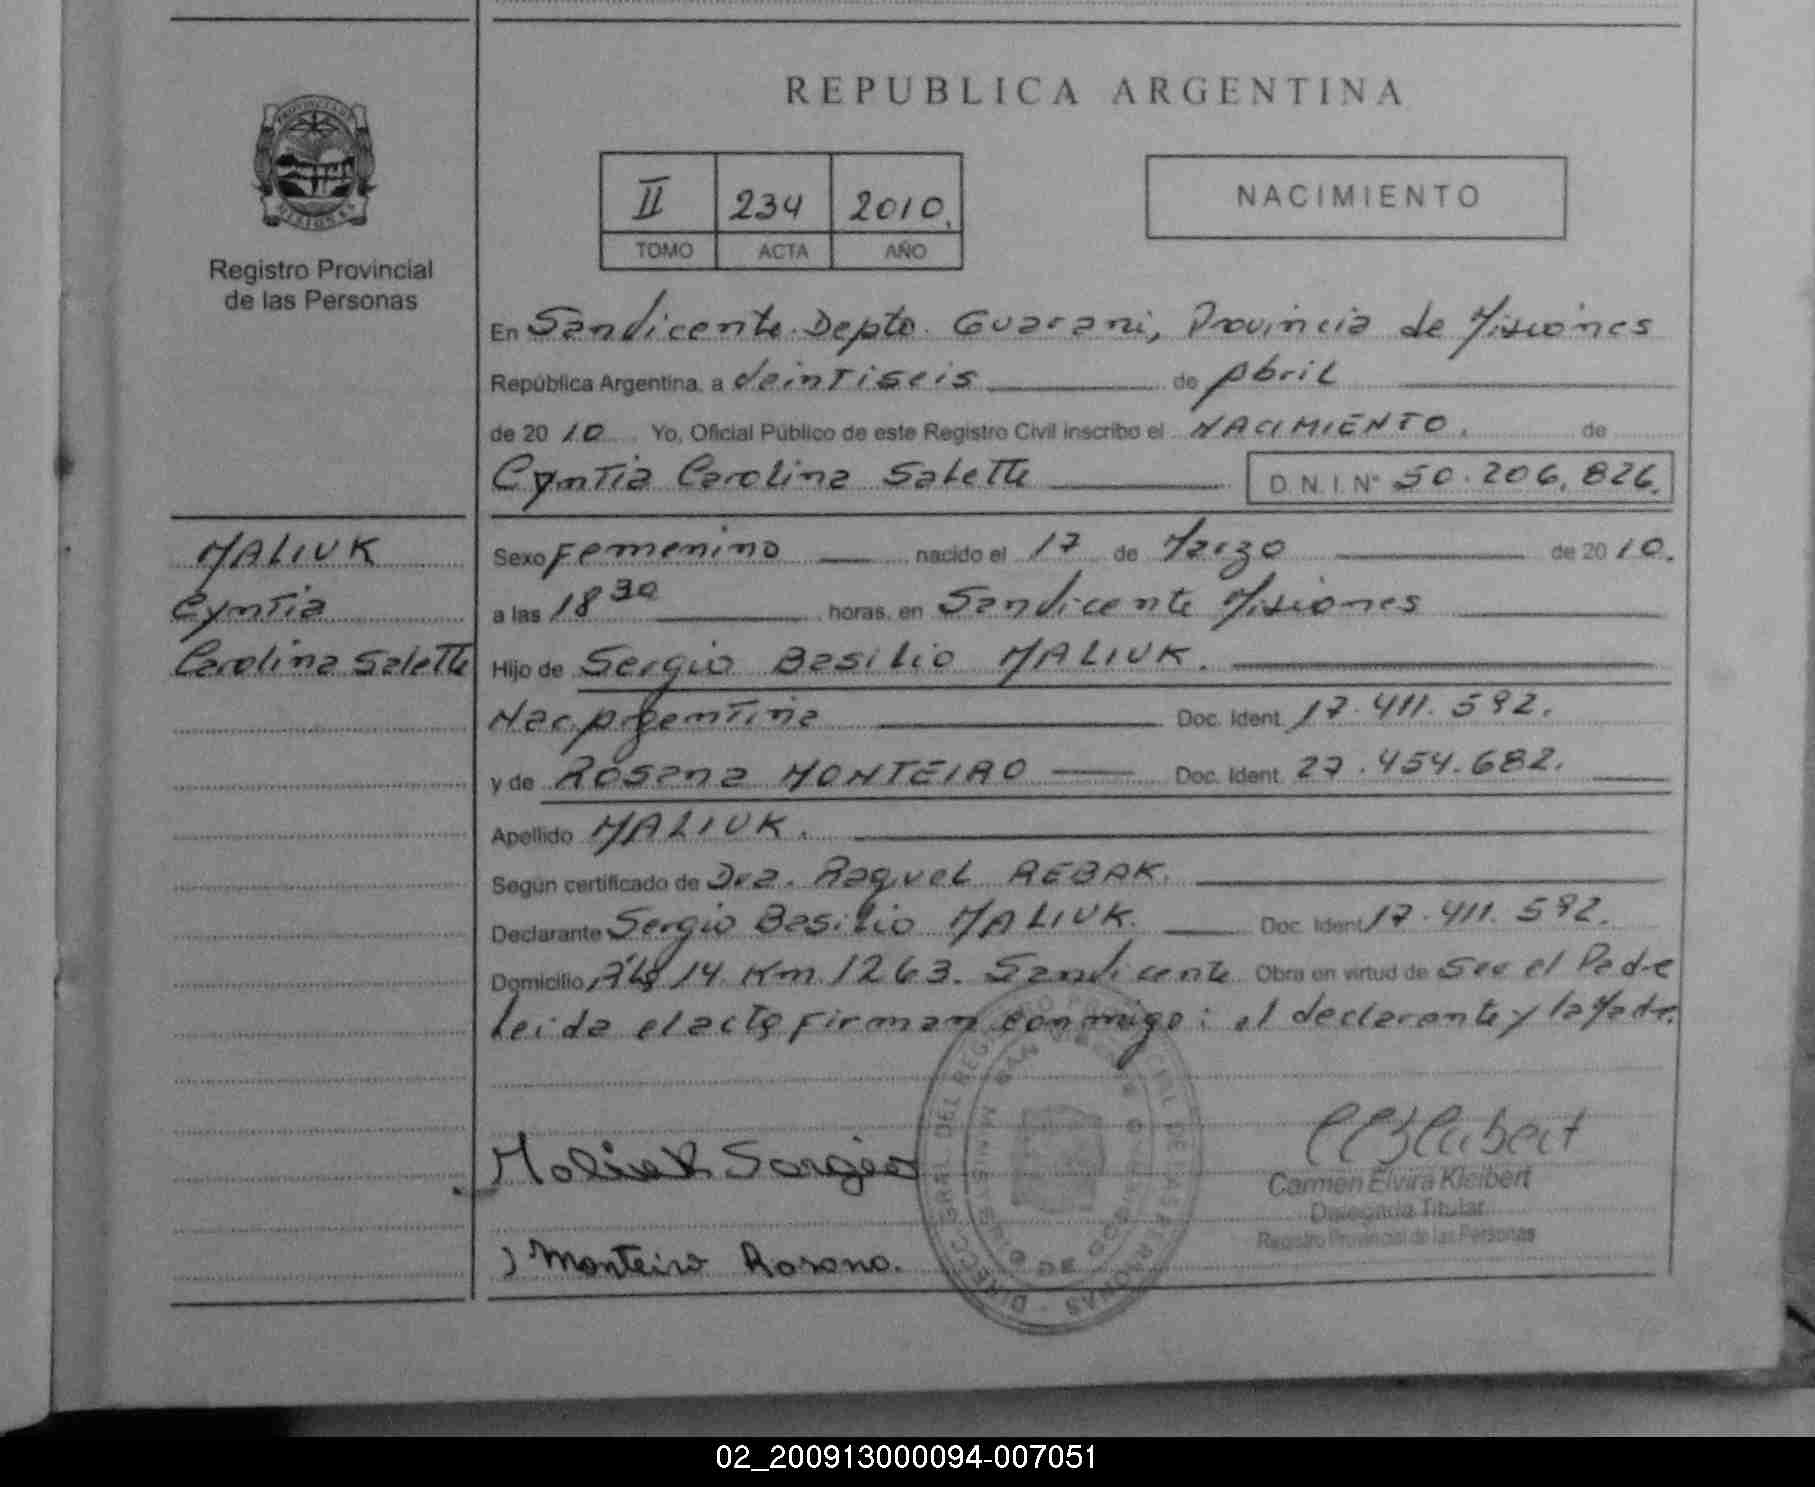 REPUBLICA ARGENTINA
PROVINCIA DE MISIONES
Registro Provincial
de las Personas
II 234 2010
TOMO ACTA AÑO
NACIMIENTO
En San Vicente Depto. Guarani, Provincia de Misiones
República Argentina, a Veintiseis de Abril
de 2010 Yo, Oficial Público de este Registro Civil inscribo el NACIMIENTO. de
Cyntia Carolina Salette D.N.I. Nº 50.206.826.
MALIUK
Cyntia
Carolina Salette
Sexo Femenino nacido el 17 de Marzo de 2010.
a las 18 30 horas, en San Vicente Misiones
Hijo de Sergio Basilio MALIUK.
Nac. Argentina Doc. Ident. 17.411.592.
y de Rosana MONTEIRO Doc. Ident. 27.454.682.
Apellido MALIUK.
Según certificado de Dra. Raquel REBAK.
Declarante Sergio Basilio MALIUK. Doc. Ident. 17.411.592.
Domicilio 14 Km. 1263. San Vicente Obra en virtud de Ser el Padre
Leida el acta Firman conmigo: el declarante y la Madre.
DIRECC. GRAL. DEL REGISTRO PROVINCIAL DE LAS PERSONAS
SAN VICENTE
Maliuk Sergio
Carmen Elvira Kleibert
Delegada Titular
Registro Provincial de las Personas
Monteiro Rosana.
02_200913000094-007051